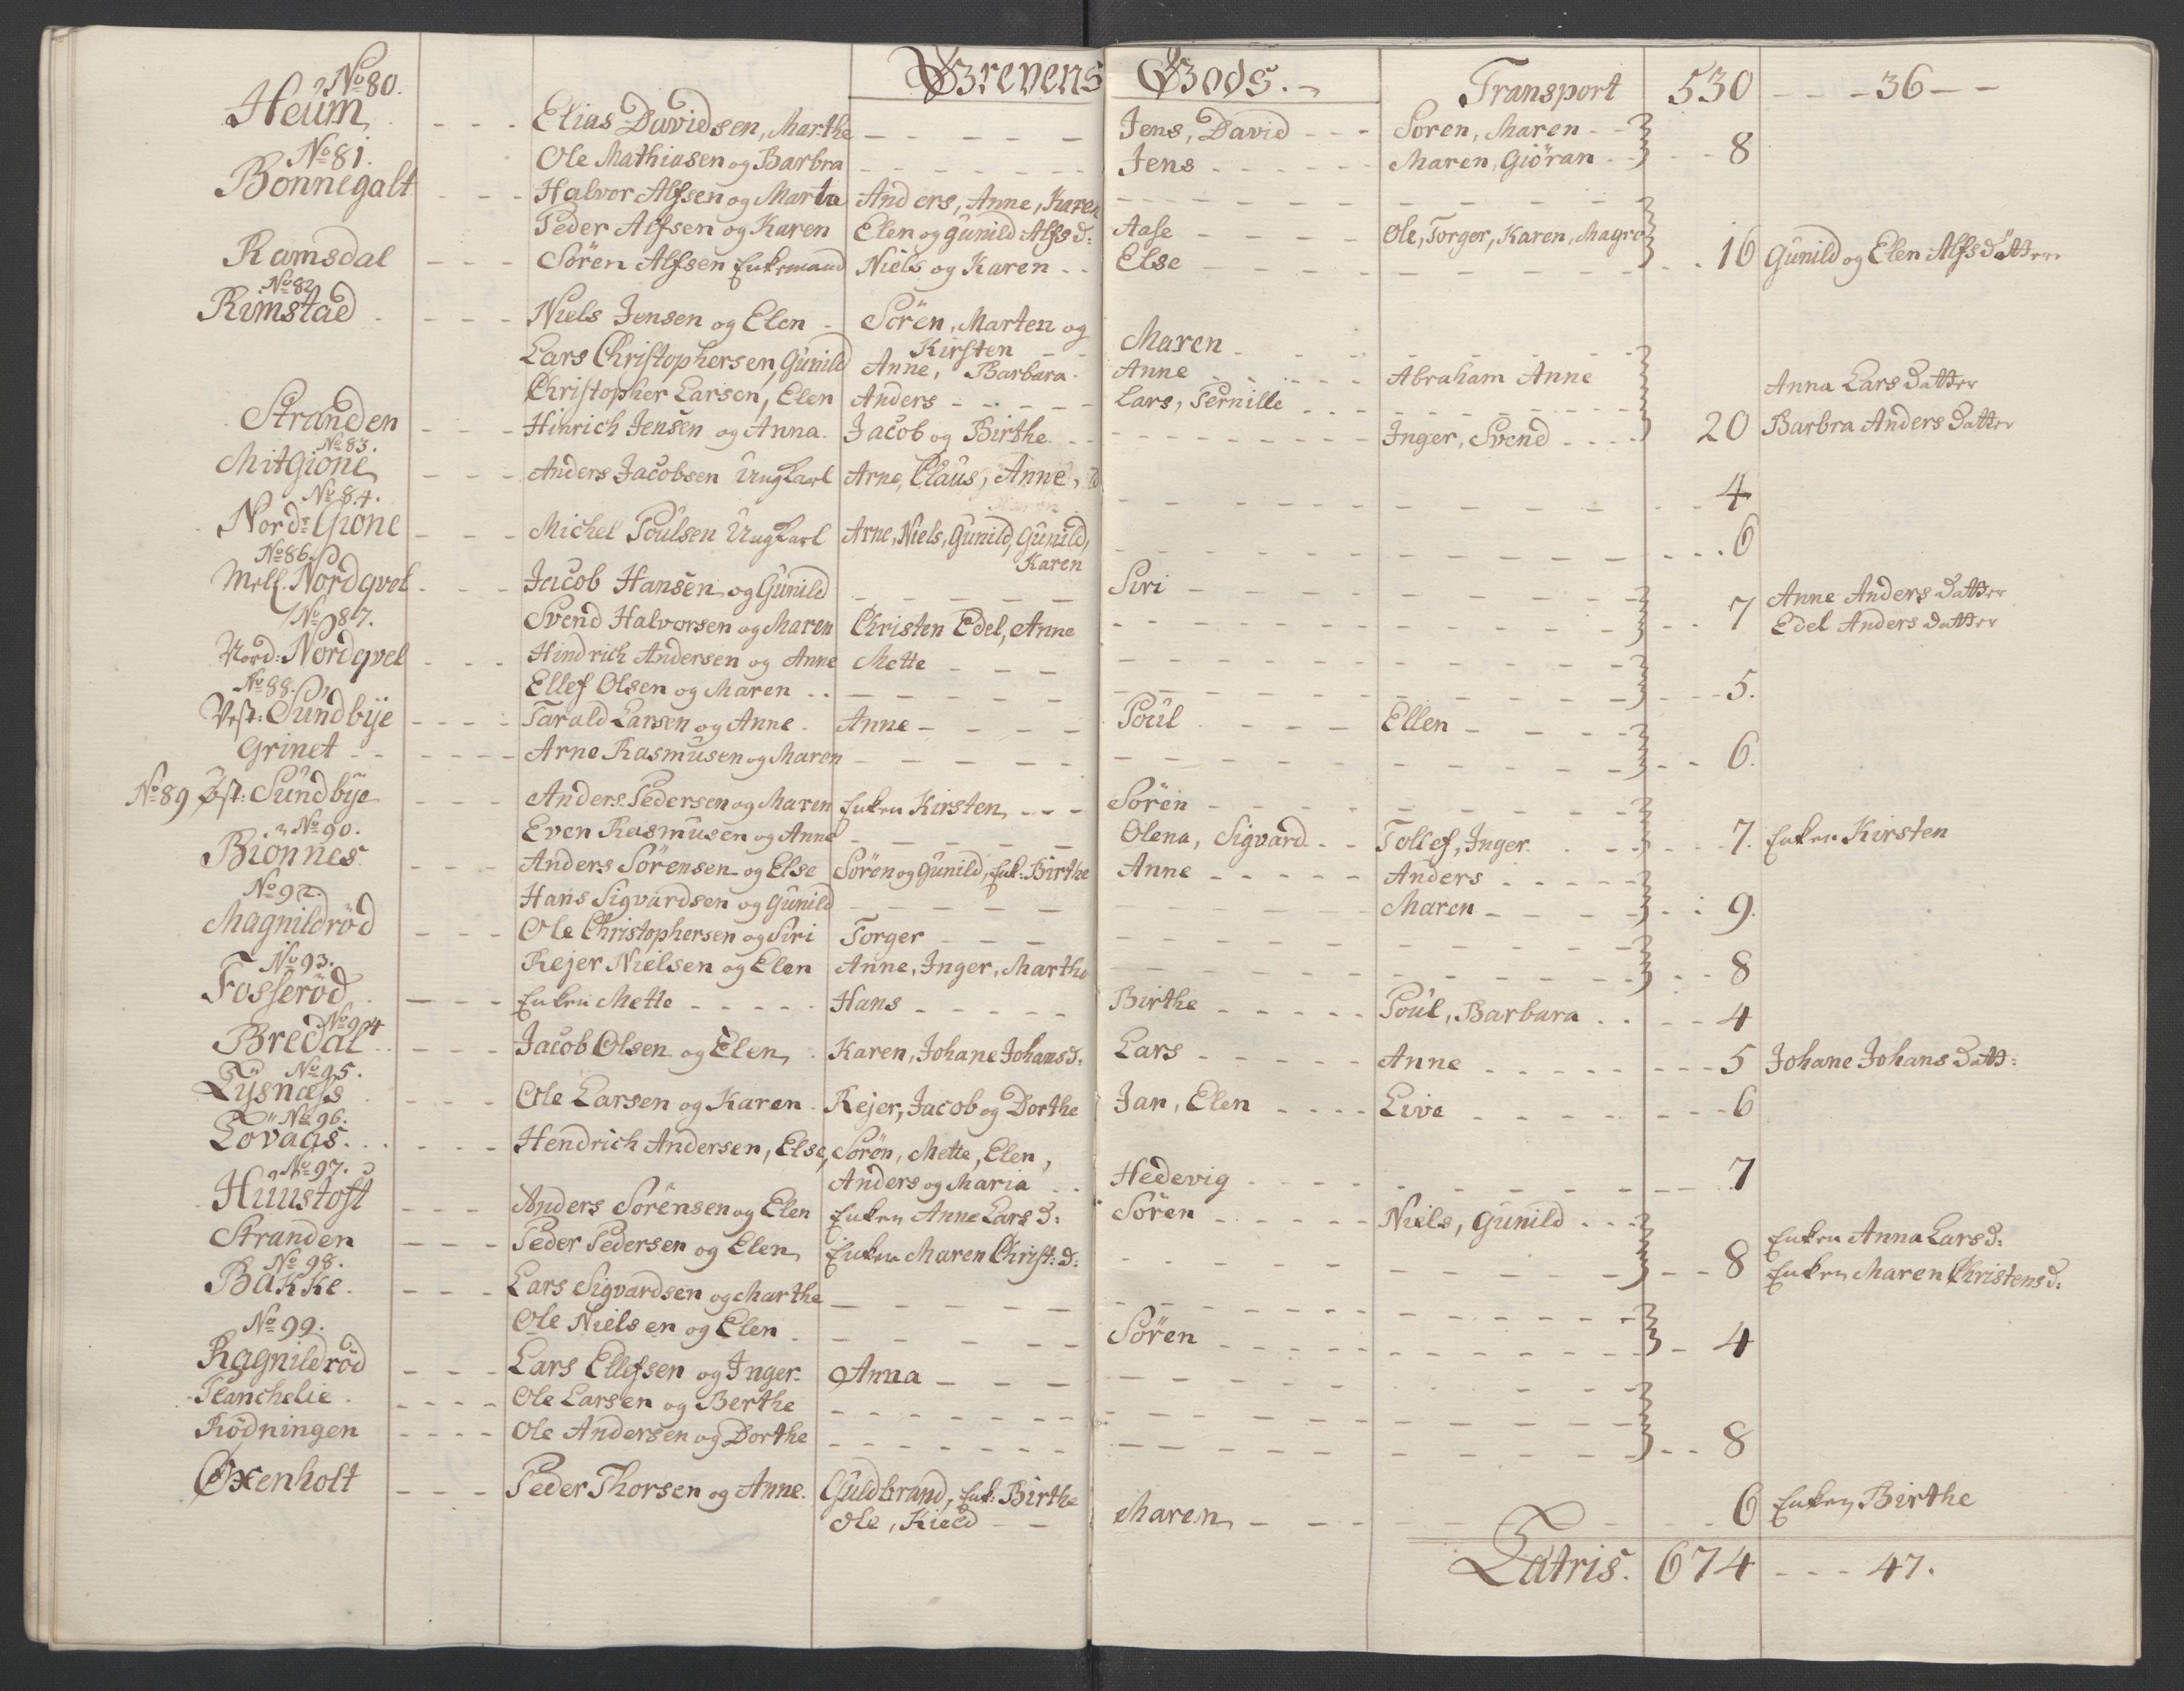 Grevens Gods. Transport 530 - - - 36 - -
No 80.
Heum - - - Elias Davidsen, Marthe - - - - Jens, David - - - Soren, Maren - -
No 81. Ole Mathiasen og Barbra - - - - Jens - - - - - Maren, Giöran - - 8
Bonnegalt - - - Halvor Alfsen og Marta Anders, Anne, Karen - - - -
Peder Alfsen og Karen Elen og Gunild Alfsd: Aase - - - - Ole, Torger, Karen, Magre
Ramsdal - - - Sören Alfsen Enkemand Niels og Karen - - Else - - - - 16 Gunild og Elen Alfsdatter
No 82
Rimstad - - - Niels Jensen og Elen - Sören, Marten og
Kirsten - - Maren - - - -
Lars Christophersen, Gunild Anne, Barbara - Anne - - - - Abraham Anne Anna Larsdatter
Christopher Larsen, Elen Anders - - - - Lars, Pernille - - - -
Stranden - - - Hinrich Jensen og Anna. Jacob og Birthe - - - - Inger, Svend - - - - 20 Barbra Andersdatter
No 83.
MitGione - - - Anders Jacobsen Ungkarl Arne, Claus, Anne, - - - - 4
No 84.
Nord: Gione - - - Michel Poulsen Ungkarl Arne, Niels, Gunild, Gunild, - - - - 6
Karen
No 86.
Mell. Nordqvel - - - Jacob Hansen og Gunild - - - - Siri - - - - Anne Andersdatter
No 87. Svend Halvorsen og Maren Christen Edel, Anne - - - - 7 Edel Andersdatter
Nord: Nordqvel - - - Hindrich Andersen og Anne Mette - - - -
No 88. Ellef Olsen og Maren - - - - 5.
Vest: Sundbye - - - Tarald Larsen og Anne - Anne - - - - Poul - - - - Ellen - - - -
Grinet - - - - Arne Rasmusen og Maren - - - - 6.
No 89 Øst: Sundbye - - - Anders Pedersen og Maren Enken Kirsten - - - Sören - - - -
No 90. Even Rasmusen og Anne - - - - Olena, Sigvard - - Tollef, Inger - - - - 7. Enken Kirsten
Bionnes - - - Anders Sörensen og Else Sören og Gunild, Enk: Birthe Anne - - - - Anders - - - -
No 92. Hans Sigvardsen og Gunild - - - - Maren - - - - 9.
Magnildröd - - - Ole Christophersen og Siri Torger - - - -
No 93. Rejer Nielsen og Elen Anne, Inger, Marthe - - - - 8
Fosseröd - - - Enken Mette - - - - Hans - - - - Birthe - - - - Poul, Barbara - - - - 4
No 94
Bredal - - - Jacob Olsen og Elen - Karen, Johane Johansd: Lars - - - - Anne - - - - 5 Johane Johansdatt:
No 95.
Lysnæss - - - Ole Larsen og Karen - Rejer, Jacob og Dorthe Jan, Elen - - - - Live - - - - 6
No 96.
Lövaas - - - Hendrich Andersen, Else, Sören, Mette, Elen,
Anders og Maria - - Hedevig - - - - 7
No 97.
Huustoft - - - Anders Sörensen og Elen Enken Anne Larsd: Sören - - - - Niels, Gunild - - - Enken Anna Larsd:
Stranden - - - Peder Pedersen og Elen Enken Maren Christ: d: - - - - 8 Enken Maren Christensd:
No 98.
Bakke - - - Lars Sigvardsen og Marthe - - - -
No 99. Ole Nielsen og Elen - - - - Sören - - - - 4
Ragnildröd - - - Lars Ellefsen og Inger - Anna - - - -
Planchelie - - - - Ole Larsen og Berthe - - - -
Rödningen - - - - Ole Andersen og Dorthe - - - - 8
Oxenholt - - - Peder Thorsen og Anne. Guldbrand, Enk: Birthe
Ole, Kield - - Maren - - - - 6 Enken Birthe
Latris. 674 - - - 47.